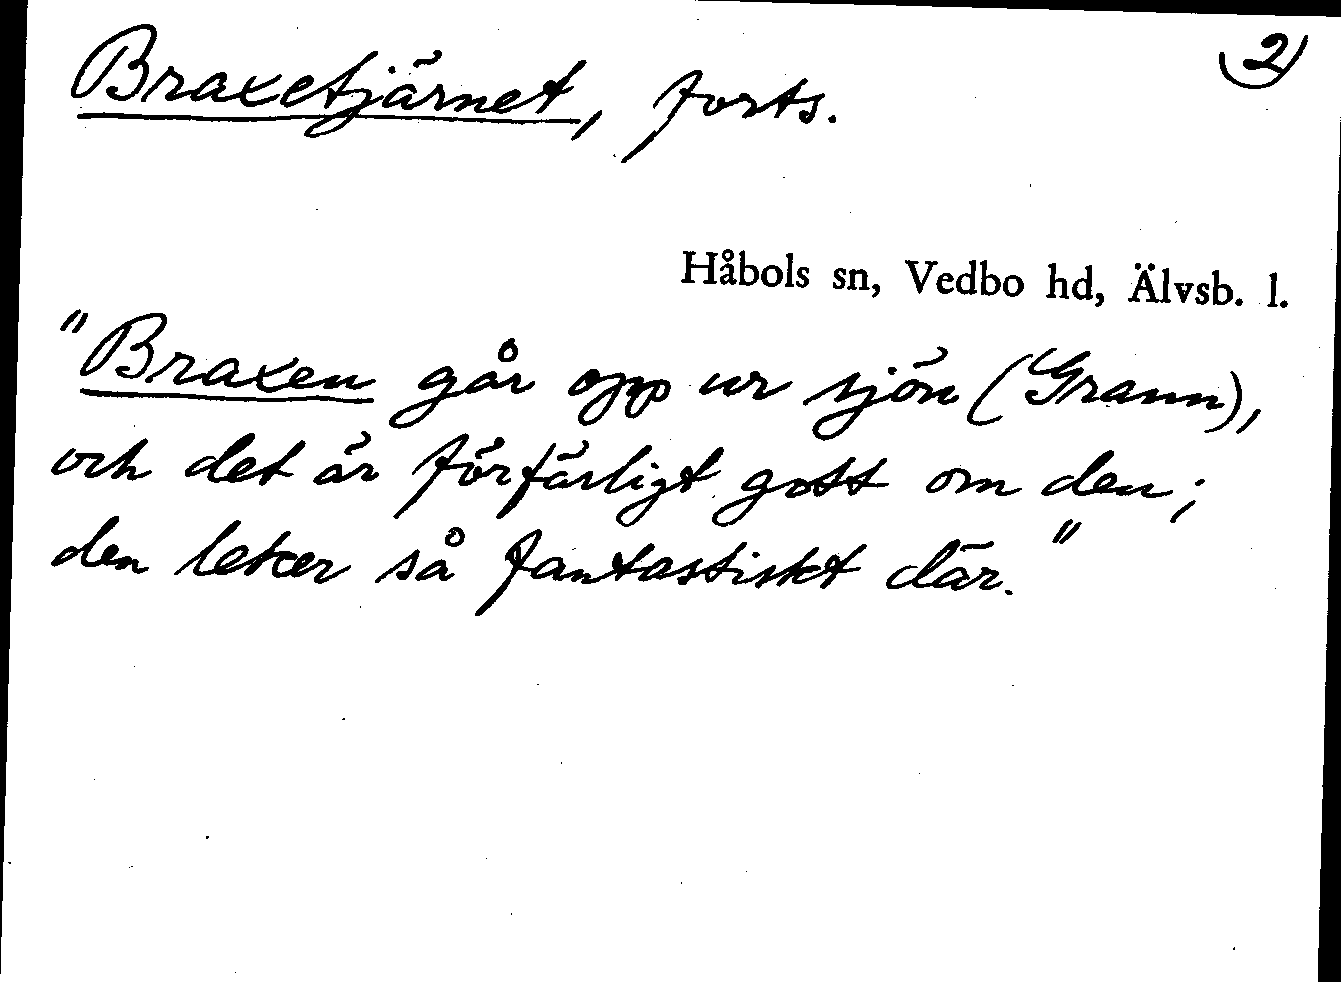 Braxetjärnet, forts.
2
Håbols sn, Vedbo hd, Älvsb. l.
"Braxen går opp ur sjön (Grann),
och det är förfärligt gott om den;
den leker så fantastiskt där."